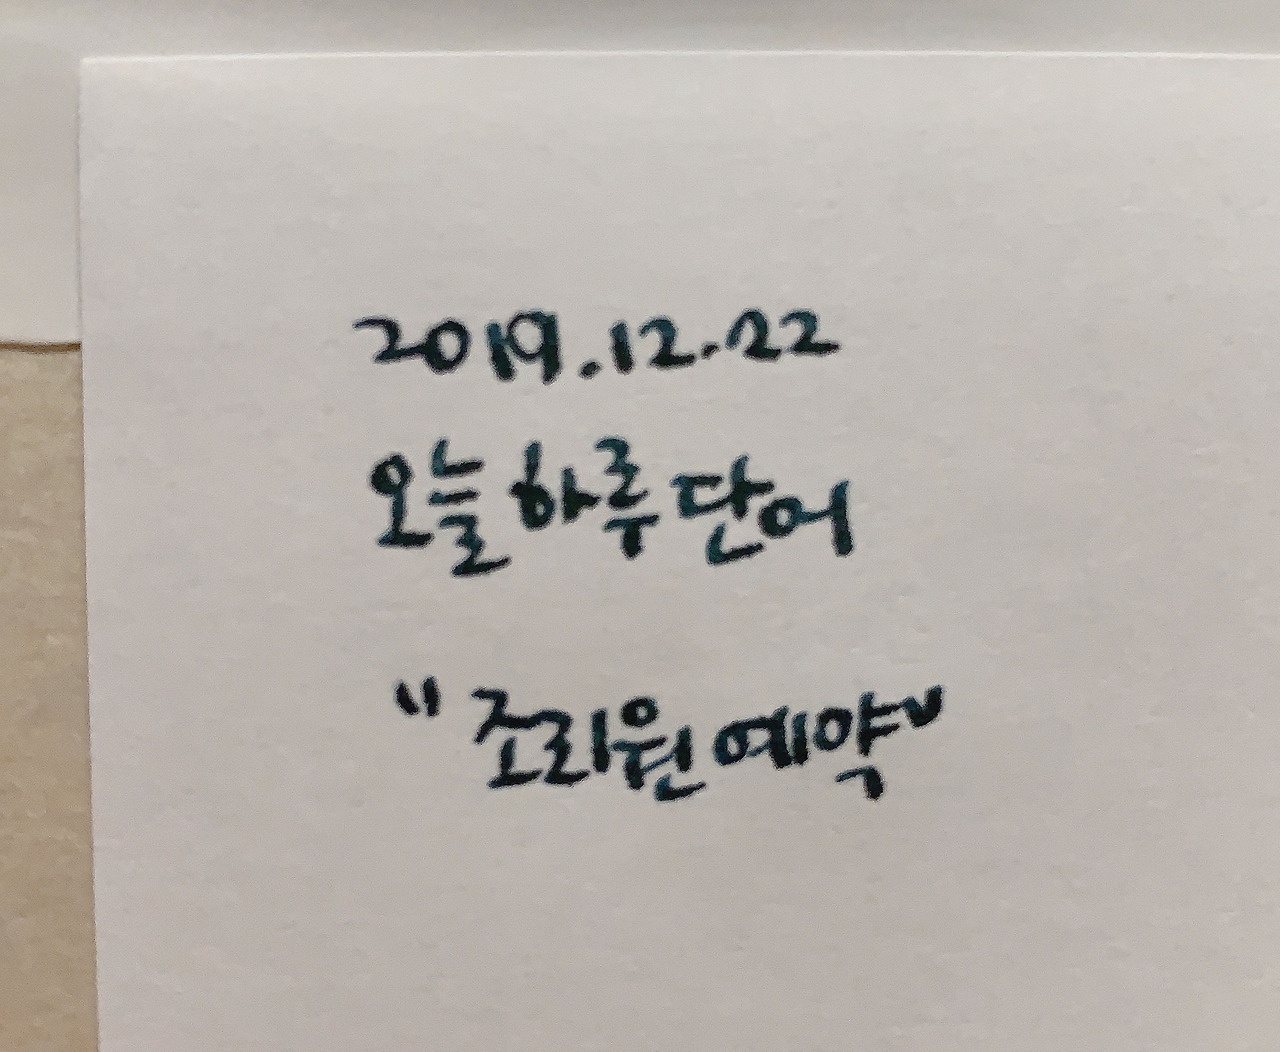 2019.12.22
오늘 하루 단어
"조리원 예약"